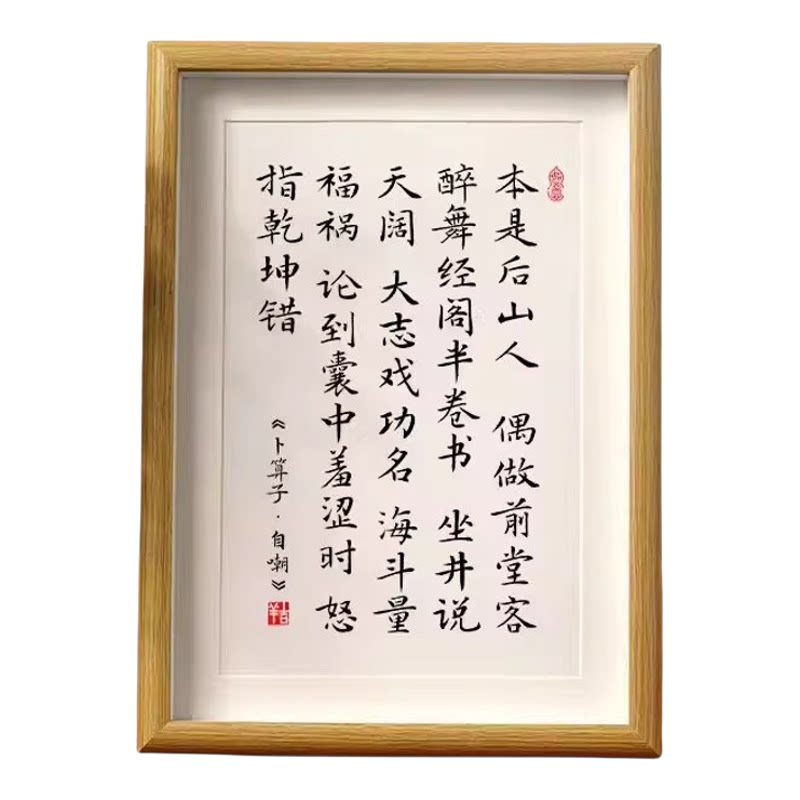 本是后山人 偶做前堂客
醉舞经阁半卷书 坐井说
天阔 大志戏功名 海斗量
福祸 论到囊中羞涩时 怒
指乾坤错
《卜算子·自嘲》